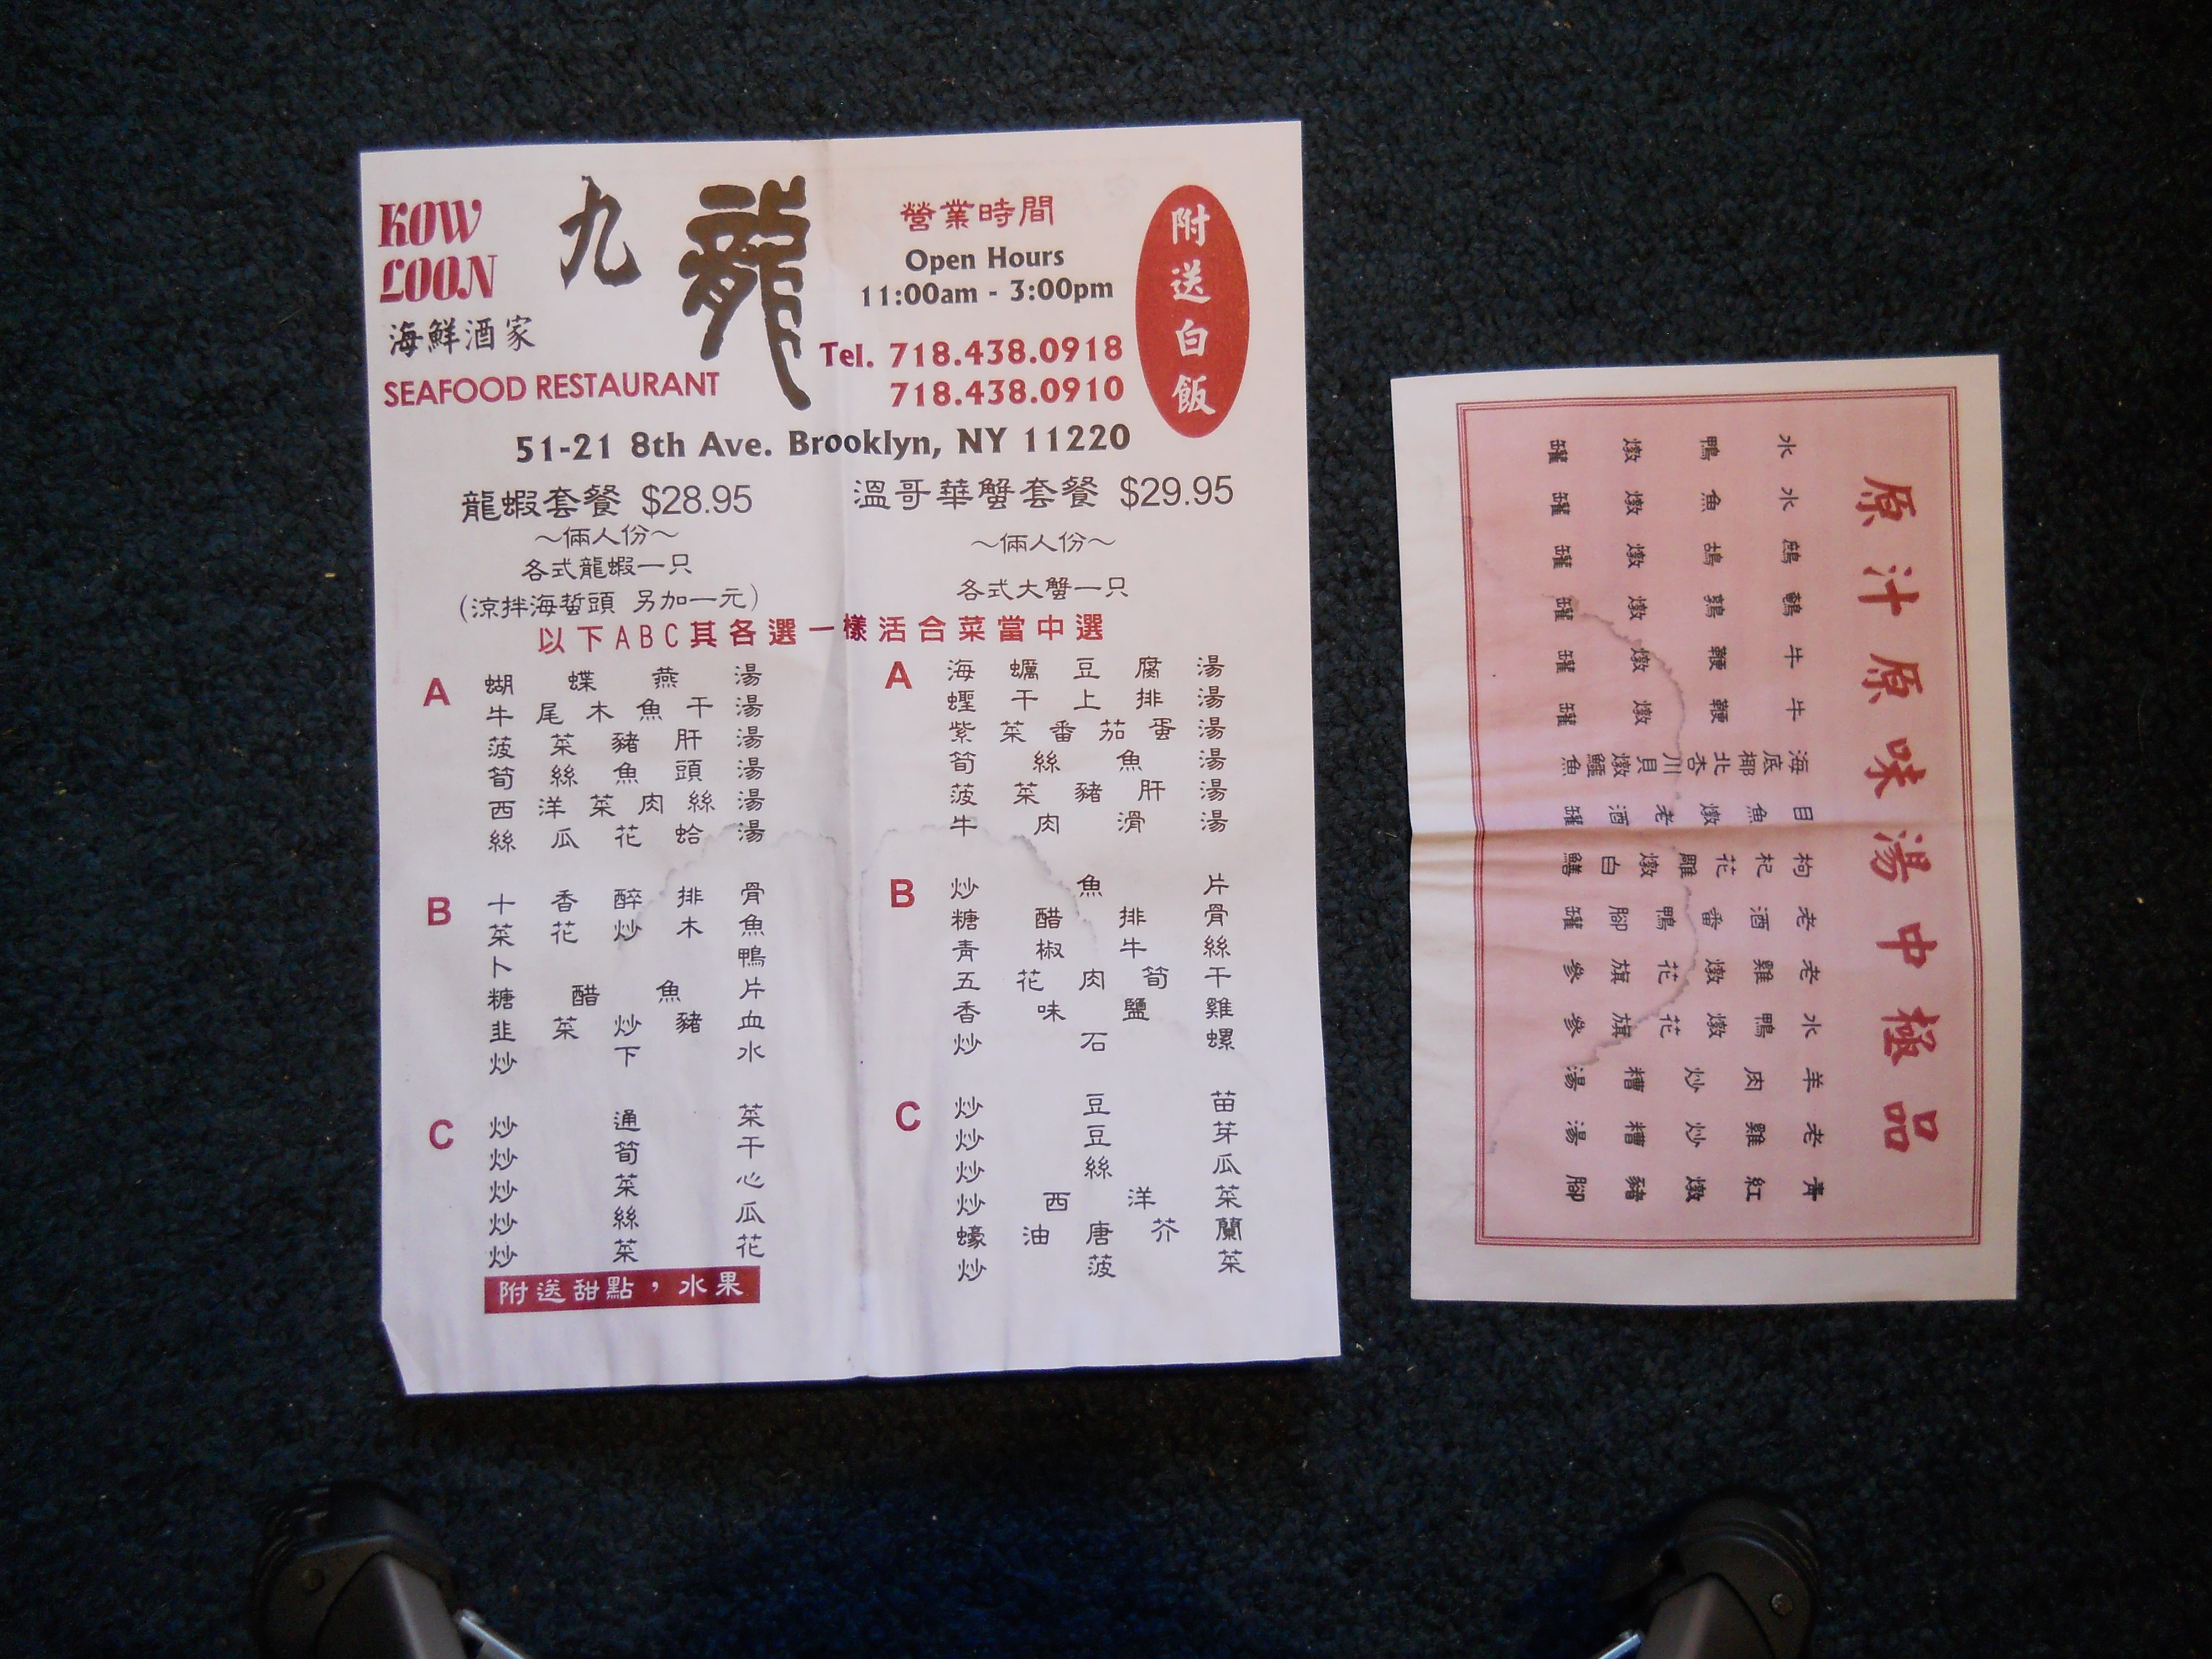 KOW
LOON
九龍
海鮮酒家
SEAFOOD RESTAURANT
營業時間
Open Hours
11:00am - 3:00pm
Tel. 718.438.0918
718.438.0910
附送白飯
51-21 8th Ave. Brooklyn, NY 11220
龍蝦套餐 $28.95
~倆人份~
各式龍蝦一只
(涼拌海蜇頭 另加一元)
溫哥華蟹套餐 $29.95
~倆人份~
各式大蟹一只
以下ABC其各選一樣活合菜當中選
A
蝴蝶燕湯
牛尾木魚干湯
菠菜豬肝湯
筍絲魚頭湯
西洋菜肉絲湯
絲瓜花蛤湯
B
十香醉排骨
菜花炒木魚
卜鴨
糖醋魚片
韭菜炒豬血
炒下水
C
炒通菜
炒筍干
炒菜心
炒絲瓜
炒菜花
附送甜點，水果
A
海蠣豆腐湯
蟶干上排湯
紫菜番茄蛋湯
筍絲魚湯
菠菜豬肝湯
牛肉滑湯
B
炒魚片
糖醋排骨
青椒牛絲
五花肉筍干
香味鹽雞
炒石螺
C
炒豆苗
炒豆芽
炒絲瓜
炒西洋菜
蠔油唐芥蘭
炒菠菜
原汁原味湯中極品
水鴨燉罐
水魚燉罐
鷓鴣燉罐
鵪鶉燉罐
牛鞭燉罐
牛鞭燉罐
海底椰北杏川貝燉鱷魚
目魚燉老酒罐
枸杞花雕燉白鱔
老酒番鴨腳罐
老雞燉花旗參
水鴨燉花旗參
羊肉炒糟湯
老雞炒糟湯
青紅燉豬腳